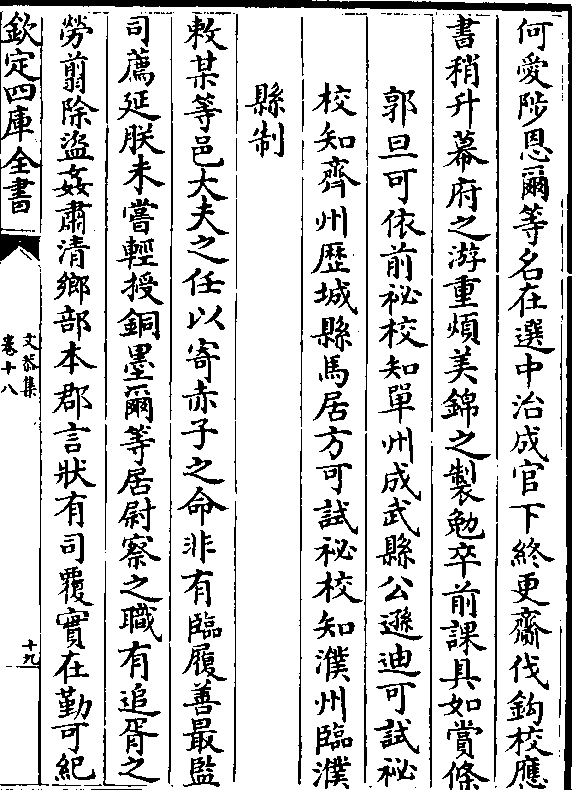 何愛陟恩爾等名在選中治成官下終更齋伐鈎校應
書稍升幕府之游重煩美錦之製勉卒前課具如賞條
郭旦可依前祕校知單州成武縣公遜迪可試祕
校知齊州歴城縣馬居方可試祕校知濮州臨濮
縣制
敕某等邑大夫之任以寄赤子之命非有臨履善最監
司薦延朕未嘗輕授銅墨爾等居尉察之職有追胥之
勞翦除盜姦肅清鄉部本郡言狀有司覆實在勤可紀
欽定四庫全書
文恭集
卷十八
十九